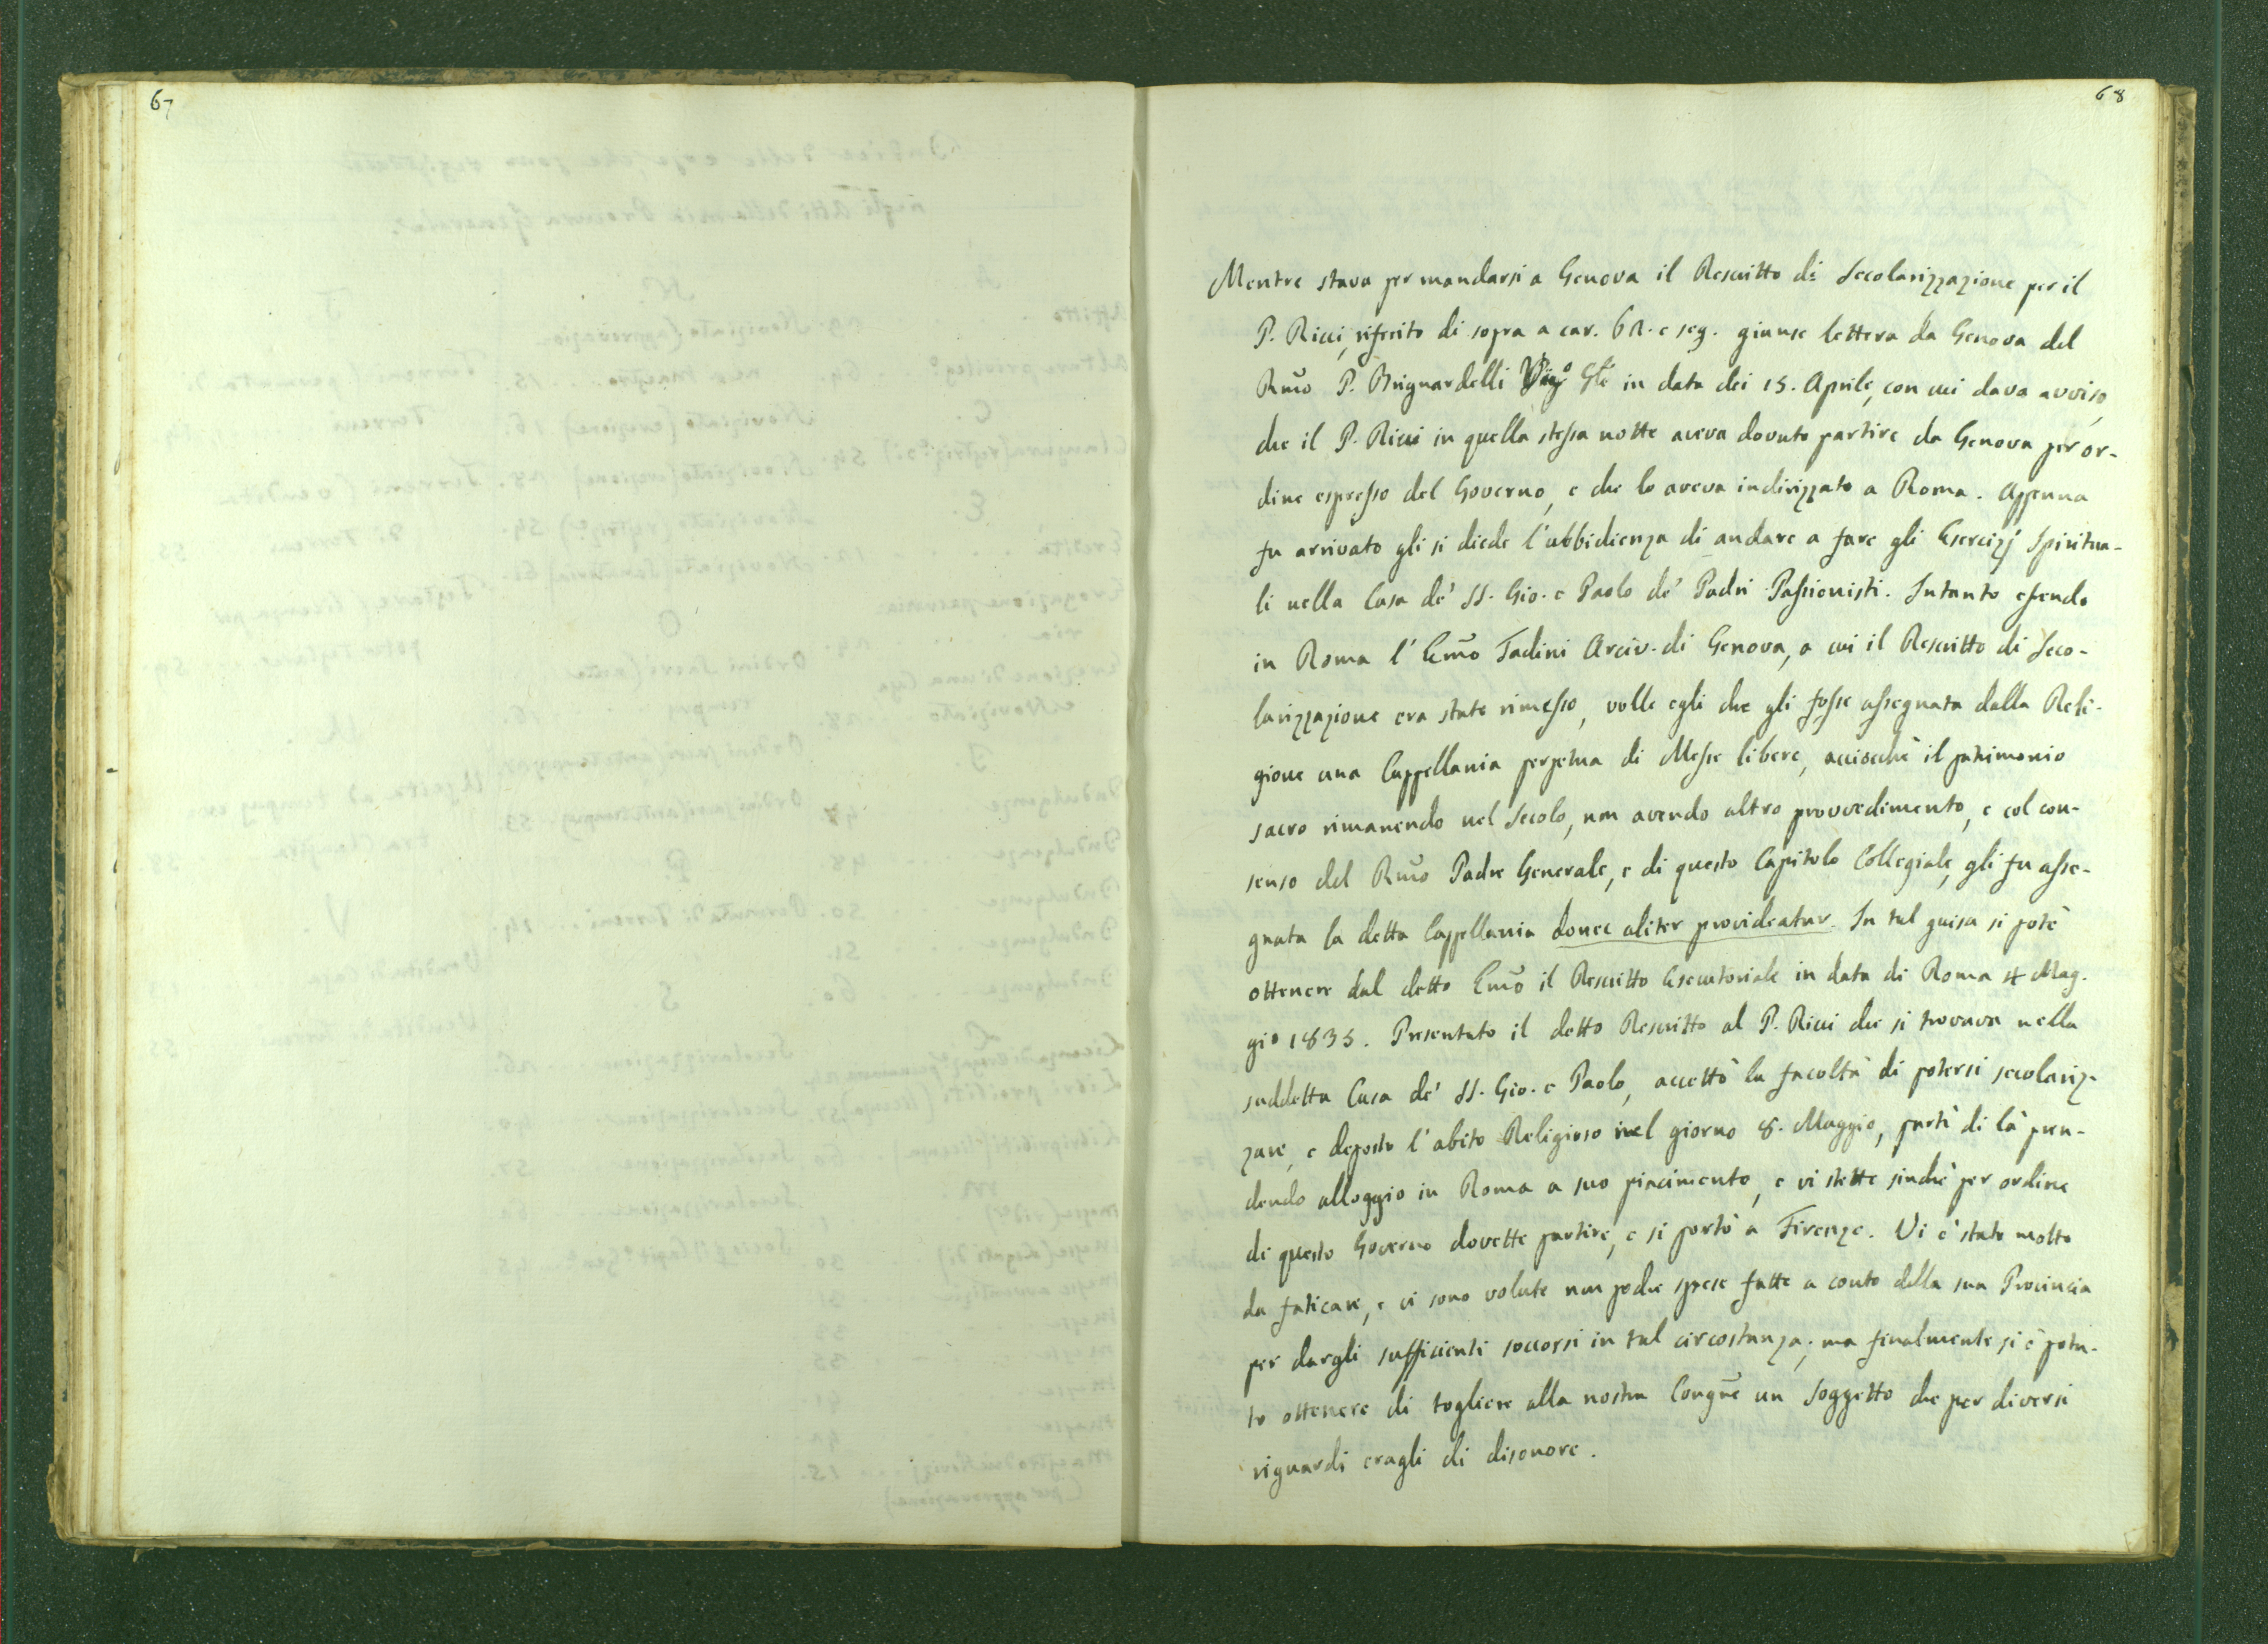 67
68
Mentre stava per mandarsi a Genova il Rescritto di Secolarizzazione per il
P. Ricci, riferito di sopra a car. 62. e seg. giunse lettera da Genova del
Rm̃o P. Brignardelli Vic.º Gl̃e in data dei 15. Aprile, con cui dava avviso,
che il P. Ricci in quella stessa notte aveva dovuto partire da Genova per or-
dine espresso del Governo, e che lo aveva indirizzato a Roma. Appena
fu arrivato gli si diede l'ubbidienza di andare a fare gli Esercizj Spiritua-
li nella Casa de' SS. Gio. e Paolo de' Padri Passionisti. Intanto essendo
in Roma l'Em̃o Tadini Arciv. di Genova, a cui il Rescritto di Seco-
larizzazione era stato rimesso, volle egli che gli fosse assegnata dalla Reli-
gione una Cappellania perpetua di Messe libere, acciocchè il patrimonio
sacro rimanendo nel Secolo, non avendo altro provvedimento, e col con-
senso del Rm̃o Padre Generale, e di questo Capitolo Collegiale, gli fu asse-
gnata la detta Cappellania donec aliter provideatur. In tal guisa si potè
ottenere dal detto Em̃o il Rescritto Esecutoriale in data di Roma 4 Mag-
gio 1835. Presentato il detto Rescritto al P. Ricci che si trovava nella
suddetta Casa de' SS. Gio. e Paolo, accettò la facoltà di potersi secolariz-
zare, e deposto l'abito Religioso nel giorno 8. Maggio, partì di là pren-
dendo alloggio in Roma a suo piacimento, e vi stette sinchè per ordine
di questo Governo dovette partire, e si portò a Firenze. Vi è stato molto
da faticare, e vi sono volute non poche spese fatte a conto della sua Provincia
per dargli sufficienti soccorsi in tal circostanza; ma finalmente si è potu-
to ottenere di togliere alla nostra Congñe un Soggetto che per diversi
riguardi eragli di disonore.